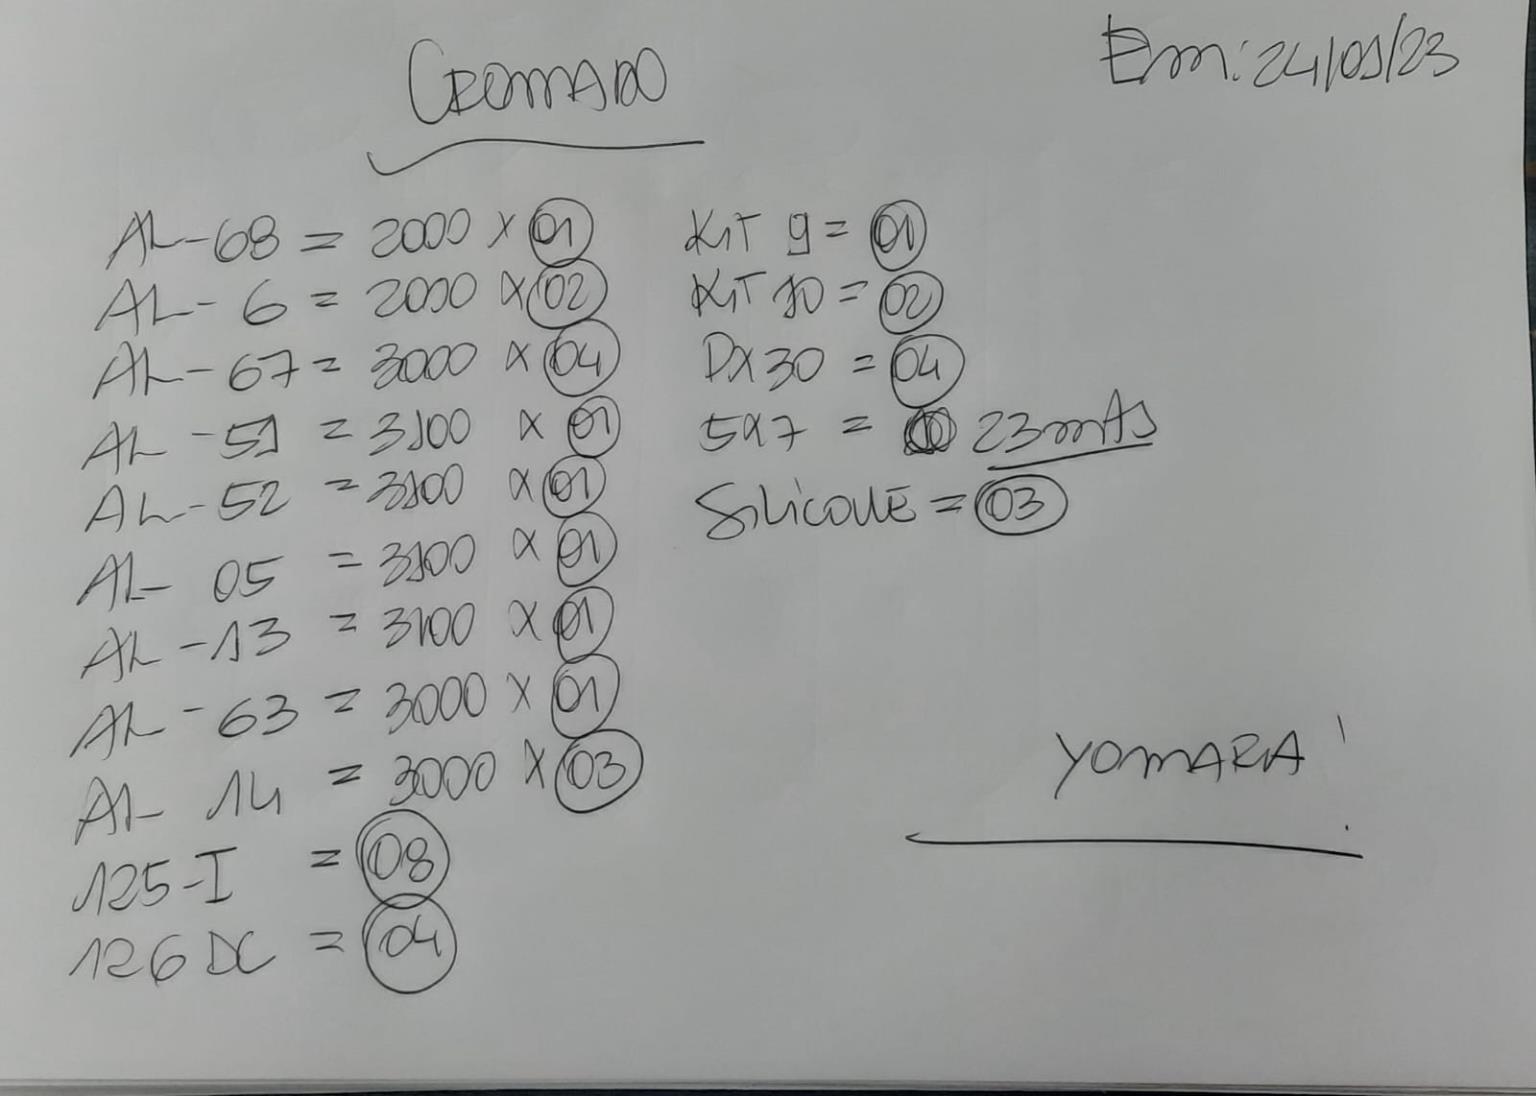 CROMADO
Em: 24/01/23
AL-68 = 2000 X 01
AL-6 = 2000 X 02
AL-67 = 3000 X 04
AL-51 = 3100 X 01
AL-52 = 3100 X 01
AL-05 = 3100 X 01
AL-13 = 3100 X 01
AL-63 = 3000 X 01
AL-14 = 3000 X 03
125-I = 08
126 DC = 04
KIT 9 = 01
KIT 10 = 02
DX30 = 04
5X7 = 23 mts
SiLicone = 03
YOMARA